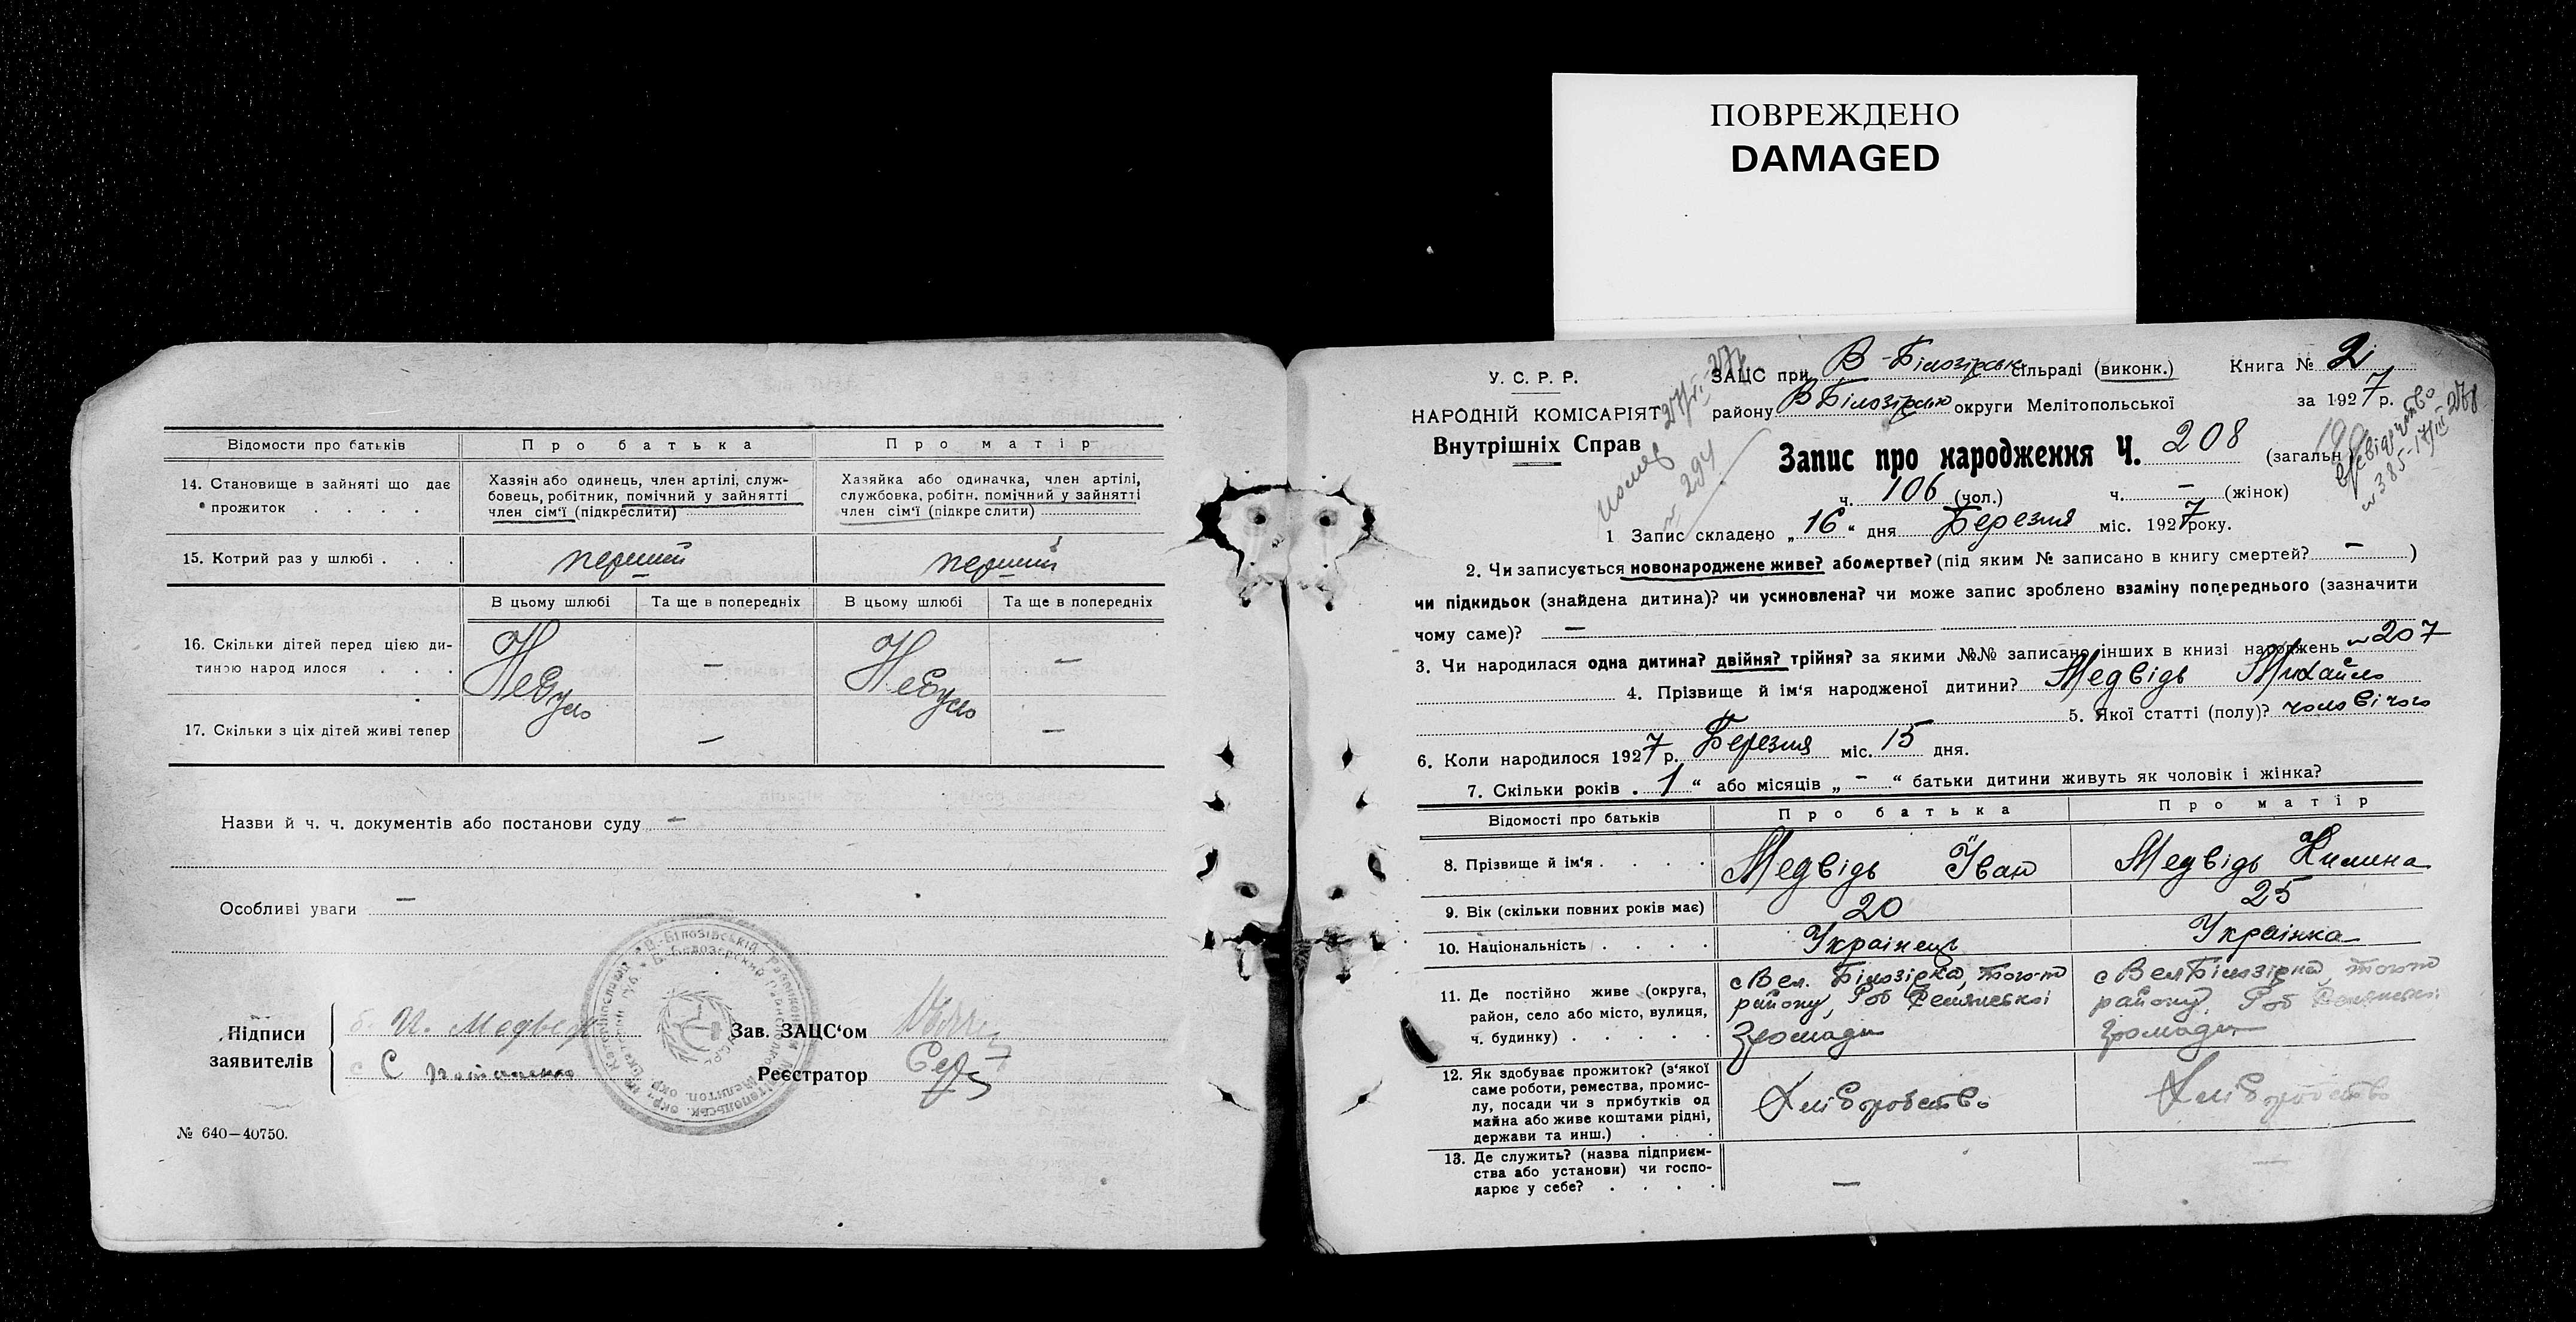 ПОВРЕЖДЕНО
DAMAGED
Відомости про батьків
Про батька
Про матір
14. Становище в зайняті що дає прожиток . . . .
Хазяїн або одинець, член артілі, служ-
бовець, робітник, помічний у зайнятті
член сім'ї (підкреслити)
Хазяйка або одиначка, член артілі,
службовка, робітн. помічний у зайнятті
член сім'ї (підкреслити)
15. Котрий раз у шлюбі . . .
перший
перший
В цьому шлюбі
Та ще в попередніх
В цьому шлюбі
Та ще в попередніх
16. Скільки дітей перед цією ди-
тиною народилося . . .
Небуло
—
Небуло
—
17. Скільки з ціх дітей живі тепер
—
—
Назви й ч. ч. документів або постанови суду —
Особливі уваги —
Підписи
заявителів
И. Медведь
С Потапенко
Зав. ЗАЦС'ом
Реєстратор
№ 640—40750.
У. С. Р. Р.
НАРОДНІЙ КОМІСАРІЯТ
Внутрішніх Справ
ЗАЦС при В-Білозірськ сільраді (виконк.)
Книга № 2
району В Білозірсько округи Мелітопольської
за 1927 р.
Запис про народження Ч. 208 (загальн
ч. 106 (чол.) ч. — (жінок)
№ 294
№ 385-17/III
1 Запис складено „16" дня Березня міс. 1927 року.
2. Чи записується новонароджене живе? або мертве? (під яким № записано в книгу смертей? — )
чи підкидьок (знайдена дитина)? чи усиновлена? чи може запис зроблено взаміну попереднього (зазначити
чому саме)? —
3. Чи народилася одна дитина? двійня? трійня? за якими №№ записано інших в книзі народжень № 207
4. Прізвище й ім'я народженої дитини? Медвідь Михайло
5. Якої статті (полу)? чоловічого
6. Коли народилося 1927 р. Березня міс. 15 дня.
7. Скільки років „1" або місяців „—" батьки дитини живуть як чоловік і жінка?
Відомості про батьків
Про батька
Про матір
8. Прізвище й ім'я . . . .
Медвідь Іван
Медвідь Килина
9. Вік (скільки повних років має)
20
25
10. Національність . . . .
Українець
Українка
11. Де постійно живе (округа,
район, село або місто, вулиця,
ч. будинку) . . . . .
с Вел. Білозірка, того-ж
району,
громади
с Вел Білозірка, того-ж
району,
громади
12. Як здобуває прожиток? (з'якої
саме роботи, ремества, промис-
лу, посади чи з прибутків од
майна або живе коштами рідні,
держави та инш.) . . .
Хліборобство
Хліборобство
13. Де служить? (назва підприєм-
ства або установи) чи госпо-
дарює у себе? . . . .
—
—